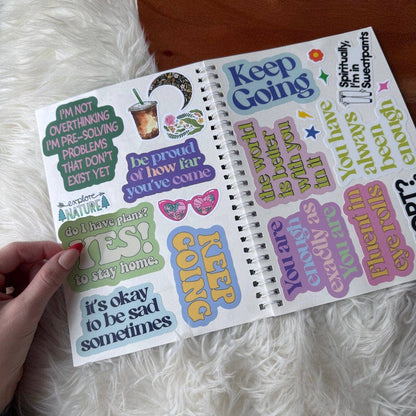 I'M NOT
OVERTHINKING
I'M PRE-SOLVING
PROBLEMS
THAT DON'T
EXIST YET
explore
NATURE
be proud
of how far
you've come
do I have plans?
YES!
to stay home.
KEEP
GOING
it's okay
to be sad
sometimes
Keep
Going
Spiritually,
I'm in
Sweatpants
the world
is better
with you
in it
You have
always
been
enough
You are
enough
exactly as
You are
Fluent in
eye rolls